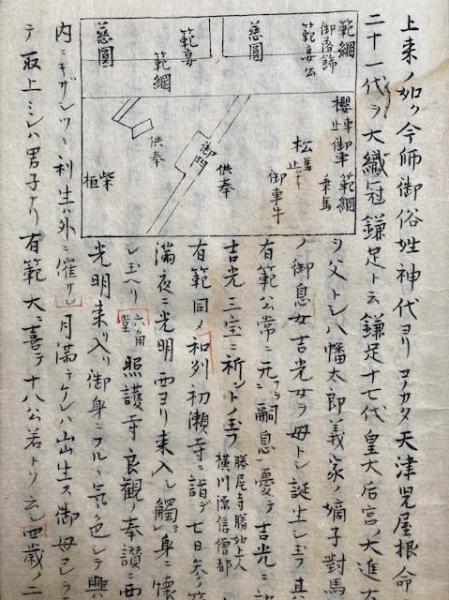 上来ノ如ク今師御俗姓神代ヨリコノカタ天津児屋根命
二十一代ヲ大織冠鎌足ト云鎌足十七代ノ皇太后宮ノ大進
範綱
御落飾
範宴公
慈圓
範宴
範綱
慈圓
櫻
車止
御車
範綱
乗馬
松
馬止
御車牛
供奉
御門
供奉
柴垣
ヲ父トシ八幡太郎義家ノ嫡子對馬
ノ御息女吉光女ヲ母トシ誕生シ玉フ其
有範公常ニ嗣息憂テ吉光ニ
吉光三宝ニ祈ントノ玉フ
勝尾寺勝如上人
横川源信僧都
有範同ノ和刕初瀬寺ニ詣デ七日参
満夜ニ光明西ヨリ来入シ觸テ身ニ懐
シ玉ヘリ六角堂照護寺良観ノ奉讃ニ西
光明来リ入リ御身ニフルヽ気色シテ興
内ニキザシツヽ利生ハ外ニ催サレ月満テケレハ出生ス御母コレヲ
テ取上ミレハ男子ナリ有範大ニ喜テ十八公若ト云シ四歳ノ二